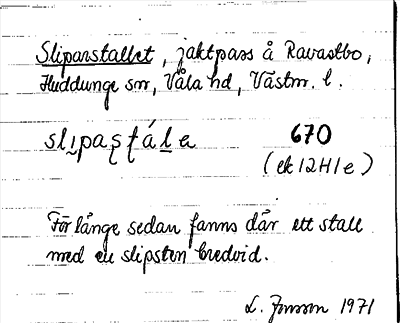 Sliparstallet, jaktpass å Ravastbo,
Huddunge sn, Våla hd, Västm. l.
slipaṣṭále 670
(ek 12H1e)
För länge sedan fanns där ett stall
med en slipsten bredvid.
L. Jonsson 1971